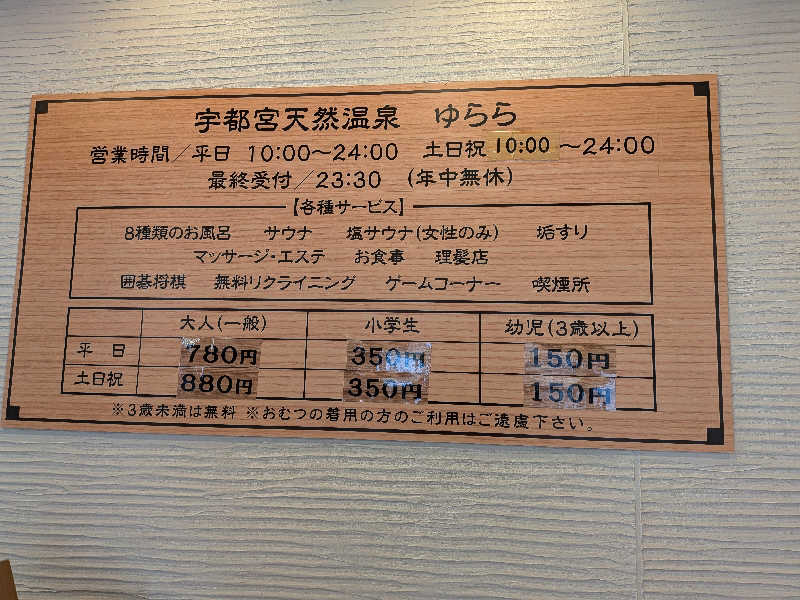 宇都宮天然温泉 ゆらら
営業時間／平日 10:00～24:00 土日祝 10:00～24:00
最終受付／23:30 (年中無休)
【各種サービス】
8種類のお風呂 サウナ 塩サウナ(女性のみ) 垢すり
マッサージ・エステ お食事 理髪店
囲碁将棋 無料リクライニング ゲームコーナー 喫煙所
大人(一般) 小学生 幼児(3歳以上)
平日 780円 350円 150円
土日祝 880円 350円 150円
※3歳未満は無料 ※おむつの着用の方のご利用はご遠慮下さい。